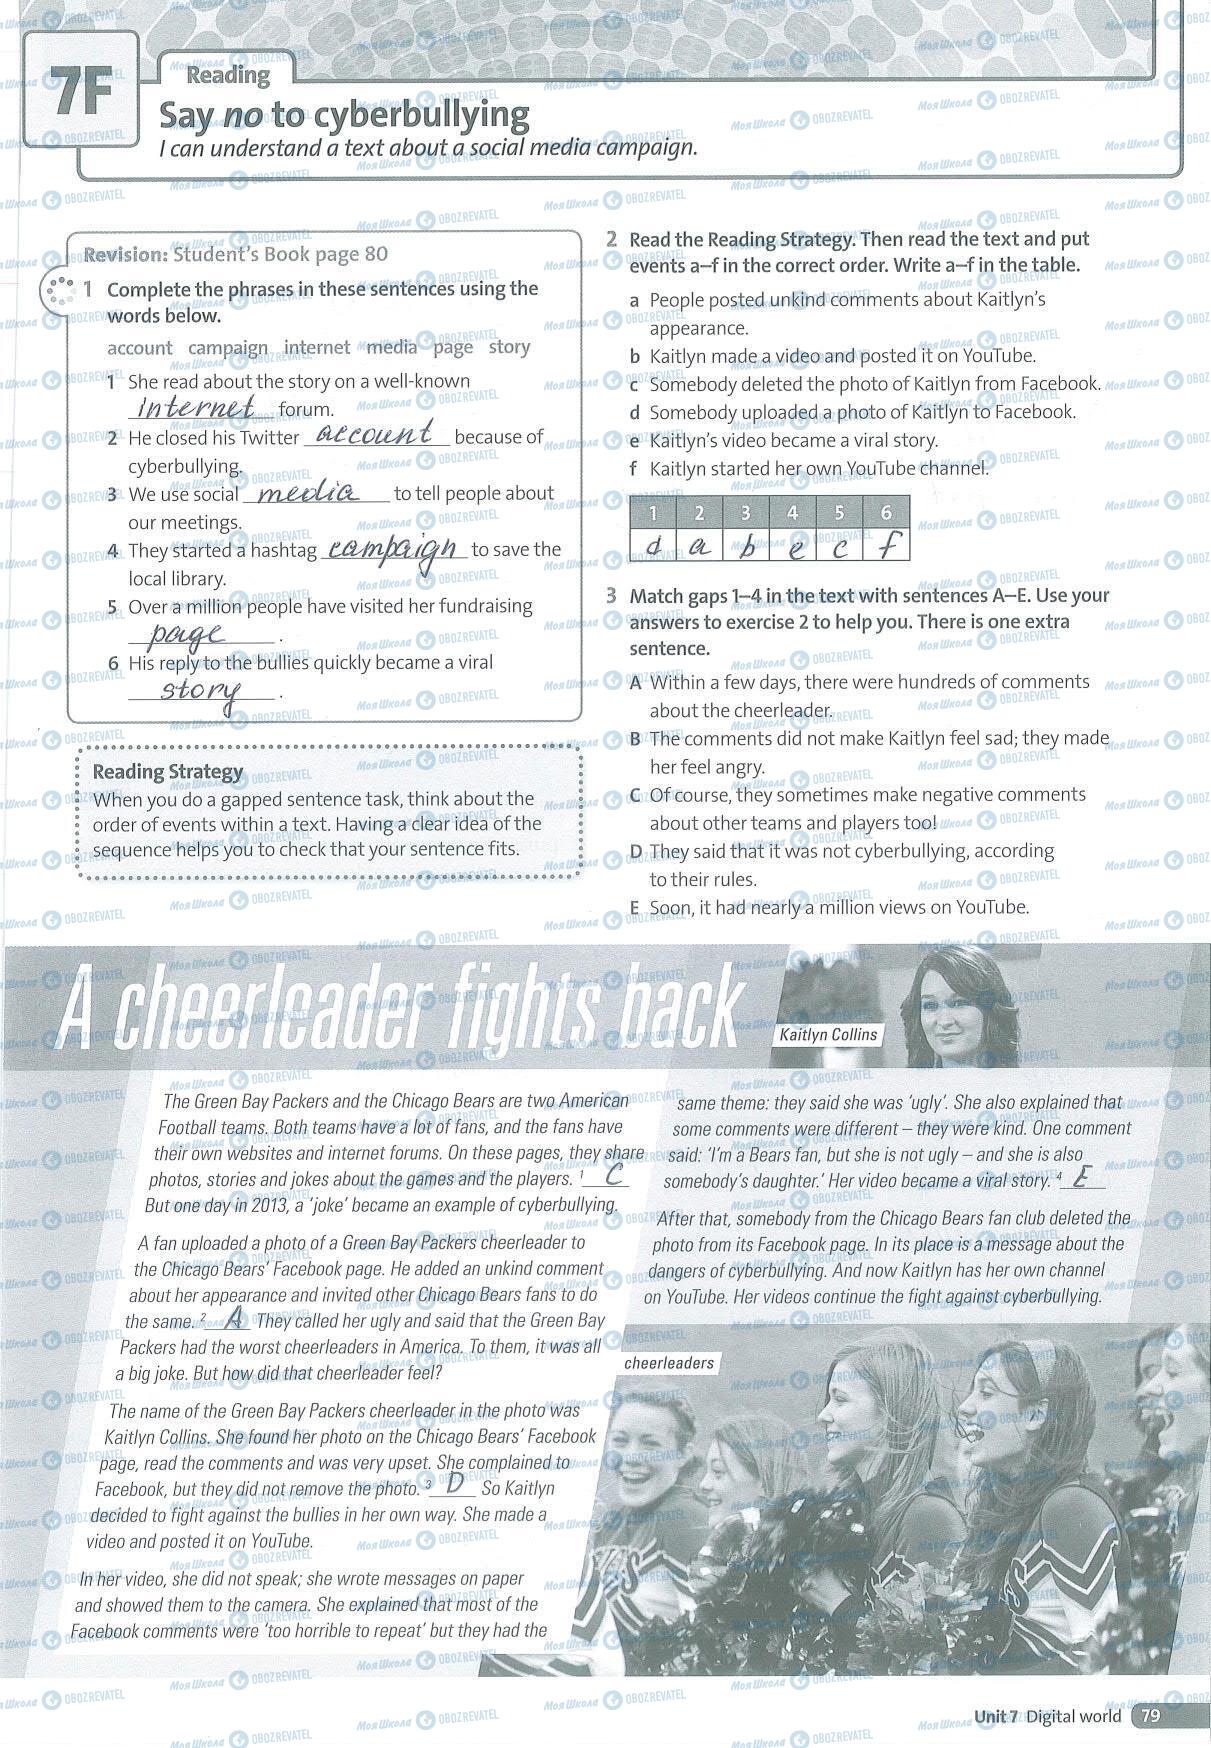 7F
Reading
Say no to cyberbullying
I can understand a text about a social media campaign.
Revision: Student's Book page 80
1 Complete the phrases in these sentences using the
words below.
account campaign internet media page story
1 She read about the story on a well-known
internet forum.
2 He closed his Twitter account because of
cyberbullying.
3 We use social media to tell people about
our meetings.
4 They started a hashtag campaign to save the
local library.
5 Over a million people have visited her fundraising
page .
6 His reply to the bullies quickly became a viral
story .
Reading Strategy
When you do a gapped sentence task, think about the
order of events within a text. Having a clear idea of the
sequence helps you to check that your sentence fits.
2 Read the Reading Strategy. Then read the text and put
events a–f in the correct order. Write a–f in the table.
a People posted unkind comments about Kaitlyn's
appearance.
b Kaitlyn made a video and posted it on YouTube.
c Somebody deleted the photo of Kaitlyn from Facebook.
d Somebody uploaded a photo of Kaitlyn to Facebook.
e Kaitlyn's video became a viral story.
f Kaitlyn started her own YouTube channel.
1 2 3 4 5 6
d a b e c f
3 Match gaps 1–4 in the text with sentences A–E. Use your
answers to exercise 2 to help you. There is one extra
sentence.
A Within a few days, there were hundreds of comments
about the cheerleader.
B The comments did not make Kaitlyn feel sad; they made
her feel angry.
C Of course, they sometimes make negative comments
about other teams and players too!
D They said that it was not cyberbullying, according
to their rules.
E Soon, it had nearly a million views on YouTube.
A cheerleader fights back
Kaitlyn Collins
The Green Bay Packers and the Chicago Bears are two American
Football teams. Both teams have a lot of fans, and the fans have
their own websites and internet forums. On these pages, they share
photos, stories and jokes about the games and the players. 1 C
But one day in 2013, a 'joke' became an example of cyberbullying.
A fan uploaded a photo of a Green Bay Packers cheerleader to
the Chicago Bears' Facebook page. He added an unkind comment
about her appearance and invited other Chicago Bears fans to do
the same. 2 A They called her ugly and said that the Green Bay
Packers had the worst cheerleaders in America. To them, it was all
a big joke. But how did that cheerleader feel?
The name of the Green Bay Packers cheerleader in the photo was
Kaitlyn Collins. She found her photo on the Chicago Bears' Facebook
page, read the comments and was very upset. She complained to
Facebook, but they did not remove the photo. 3 D So Kaitlyn
decided to fight against the bullies in her own way. She made a
video and posted it on YouTube.
In her video, she did not speak; she wrote messages on paper
and showed them to the camera. She explained that most of the
Facebook comments were 'too horrible to repeat' but they had the
same theme: they said she was 'ugly'. She also explained that
some comments were different – they were kind. One comment
said: 'I'm a Bears fan, but she is not ugly – and she is also
somebody's daughter.' Her video became a viral story. 4 E
After that, somebody from the Chicago Bears fan club deleted the
photo from its Facebook page. In its place is a message about the
dangers of cyberbullying. And now Kaitlyn has her own channel
on YouTube. Her videos continue the fight against cyberbullying.
cheerleaders
Unit 7 Digital world 79
Моя Школа OBOZREVATEL